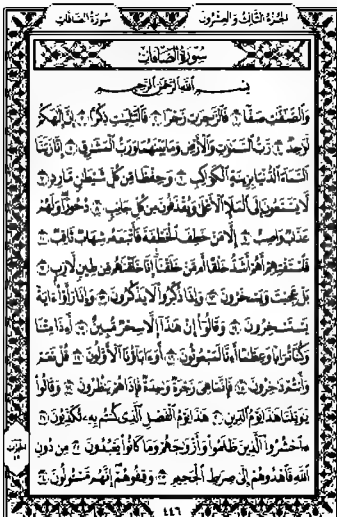 الجزء الثالث والعشرون سورة الصافات
سورة الصافات
بسم الله الرحمن الرحيم
والصافات صفا ١ فالزاجرات زجرا ٢ فالتاليات ذكرا ٣ إن إلهكم
لواحد ٤ رب السماوات والأرض وما بينهما ورب المشارق ٥ إنا زينا
السماء الدنيا بزينة الكواكب ٦ وحفظا من كل شيطان مارد ٧
لا يسمعون إلى الملإ الأعلى ويقذفون من كل جانب ٨ دحورا ولهم
عذاب واصب ٩ إلا من خطف الخطفة فأتبعه شهاب ثاقب ١٠
فاستفتهم أهم أشد خلقا أم من خلقنا إنا خلقناهم من طين لازب ١١
بل عجبت ويسخرون ١٢ وإذا ذكروا لا يذكرون ١٣ وإذا رأوا ءاية
يستسخرون ١٤ وقالوا إن هذا إلا سحر مبين ١٥ أءذا متنا
وكنا ترابا وعظاما أءنا لمبعوثون ١٦ أوءاباؤنا الأولون ١٧ قل نعم
وأنتم داخرون ١٨ فإنما هي زجرة واحدة فإذا هم ينظرون ١٩ وقالوا
ياويلنا هذا يوم الدين ٢٠ هذا يوم الفصل الذي كنتم به تكذبون ٢١
احشروا الذين ظلموا وأزواجهم وما كانوا يعبدون ٢٢ من دون
الله فاهدوهم إلى صراط الجحيم ٢٣ وقفوهم إنهم مسئولون ٢٤
٤٤٦